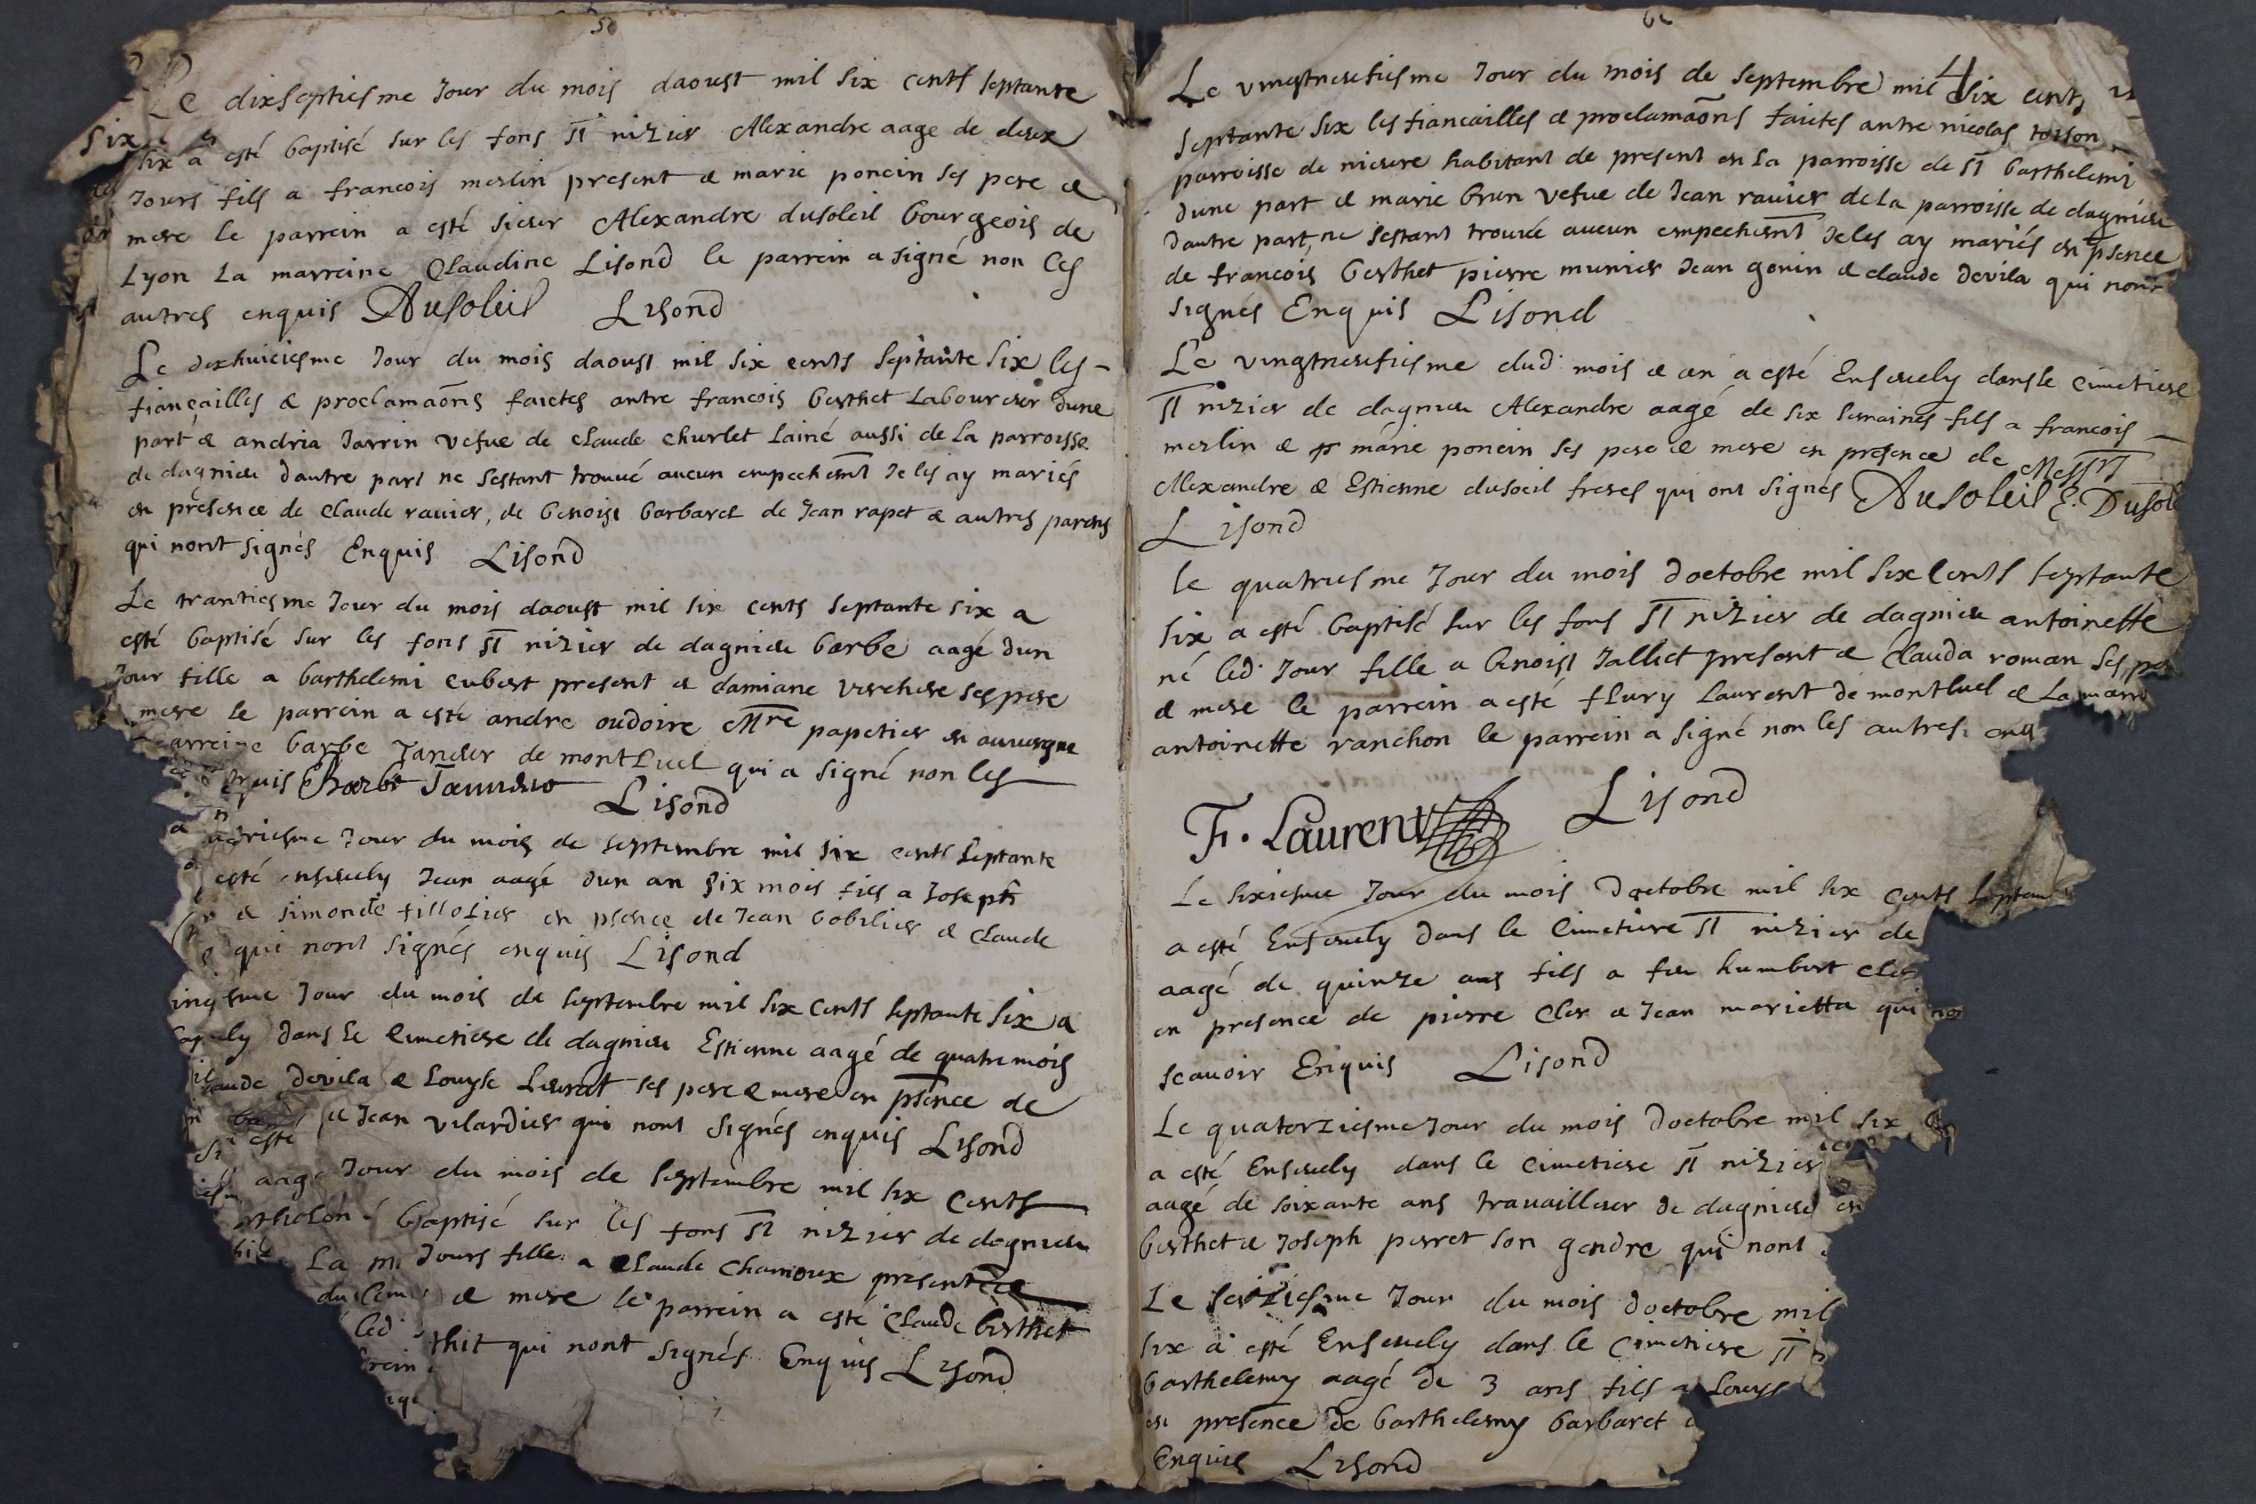 Le dixseptiesme Jour du mois daoust mil six cents septante
six a esté baptisé sur les fons st nizier Alexandre aage de deux
Jours fils a francois merlin present & marie poncin ses pere &
mere le parrein a esté sieur Alexandre dusoleil bourgeois de
Lyon La marreine Claudine Lisond le parrein a signé non les
autres enquis Dusoleil Lisond
Le dixhuictiesme Jour du mois daoust mil six cents septante six les
fiançailles & proclamaõns faictes antre francois berthet Laboureur dune
part & andria Jarrin vefue de claude churlet lainé aussi de La parroisse
de dagnieu dautre part ne sestant trouué aucun empechemt Je les ay mariés
en présence de claude rauier, de benoist barbaret de Jean rapet & autres parens
qui nont signés Enquis Lisond
Le trantiesme Jour du mois daoust mil six cents septante six a
esté baptisé sur les fons st nizier de dagnieu barbe aagé dun
Jour fille a barthelemi cubert present & damiane verchere ses pere
mere le parrein a esté andre oudoire Mtre papetier en auuergne
marreine barbe Jander de montluel qui a signé non les
Lisond
Jour du mois de septembre mil six cents septante
esté enseuely Jean aagé dun an six mois fils a Joseph
& simonde fillotier en psence de Jean bobilier & claude
qui nont signés enquis Lisond
Jour du mois de septembre mil six cents septante six a
dans le cimetiere de dagnieu Estienne aagé de quatre mois
devila & Louyse Leurat ses pere & mere en psence de
& Jean vilardier qui nont signés enquis Lisond
Jour du mois de septembre mil six cents
baptisé sur les fons st nizier de dagnieu
Jours fille a claude chamoux present &
& mere le parrein a esté claude berthet
qui nont signés Enquis Lisond
Le vingtneufiesme Jour du mois de septembre mil six cents
septante six les fiancailles & proclamaõns faictes antre nicolas toison
parroisse de nieure habitant de present en La parroisse de st barthelemi
dune part & marie brun vefue de Jean rauier de La parroisse de dagnieu
dautre part, ne sestant trouué aucun empechemt Je les ay mariés en psence
de francois berthet pierre munier Jean gonin & claude devila qui nont
signés Enquis Lisond
Le vingtneufiesme dud mois & an a esté Enseuely dans le cimetiere
st nizier de dagnieu Alexandre aagé de six semaines fils a francois
merlin & marie poncin ses pere & mere en presence de
Alexandre & Estienne dusoleil freres qui ont signés Dusoleil E. Dusol
Lisond
le quatriesme Jour du mois doctobre mil six cents septante
six a esté baptisé sur les fons st nizier de dagnieu antoinette
né led. Jour fille a benoist Jalliet present & Clauda roman ses
& mere le parrein a esté flury Laurent de montluel & La marr
antoinette ranchon le parrein a signé non les autres enq
F. Laurent Lisond
Le sixiesme Jour du mois doctobre mil six cents septan
a esté Enseuely dans le cimetiere st nizier de
aagé de quinze ans fils a feu humbert cler
en presence de pierre cler & Jean marietta qui
scauoir Enquis Lisond
Le quatorziesme Jour du mois doctobre mil six
a esté Enseuely dans le cimetiere st nizier
aagé de soixante ans trauailleur de dagnieu en
berthet & Joseph perret son gendre qui nont
Le seiziesme Jour du mois doctobre mil
six a esté Enseuely dans le cimetiere st
barthelemy aagé de 3 ans fils a Louys
en presence de barthelemy barbaret
Enquis Lisond